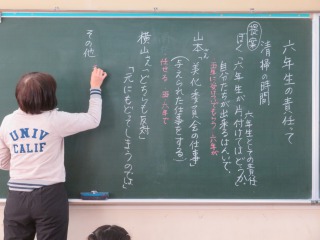 六年生の責任って
清掃の時間
提案
ぼく「六年生が片付けてはどうか」
六年生としての責任
自分たちが出来るはんいで、
山本さん「美化委員会の仕事」
（与えられた仕事をする）
任せろ
横山さん「どちらも反対」
「元にもどってしまうのでは」
その他
UNIV
CALIF